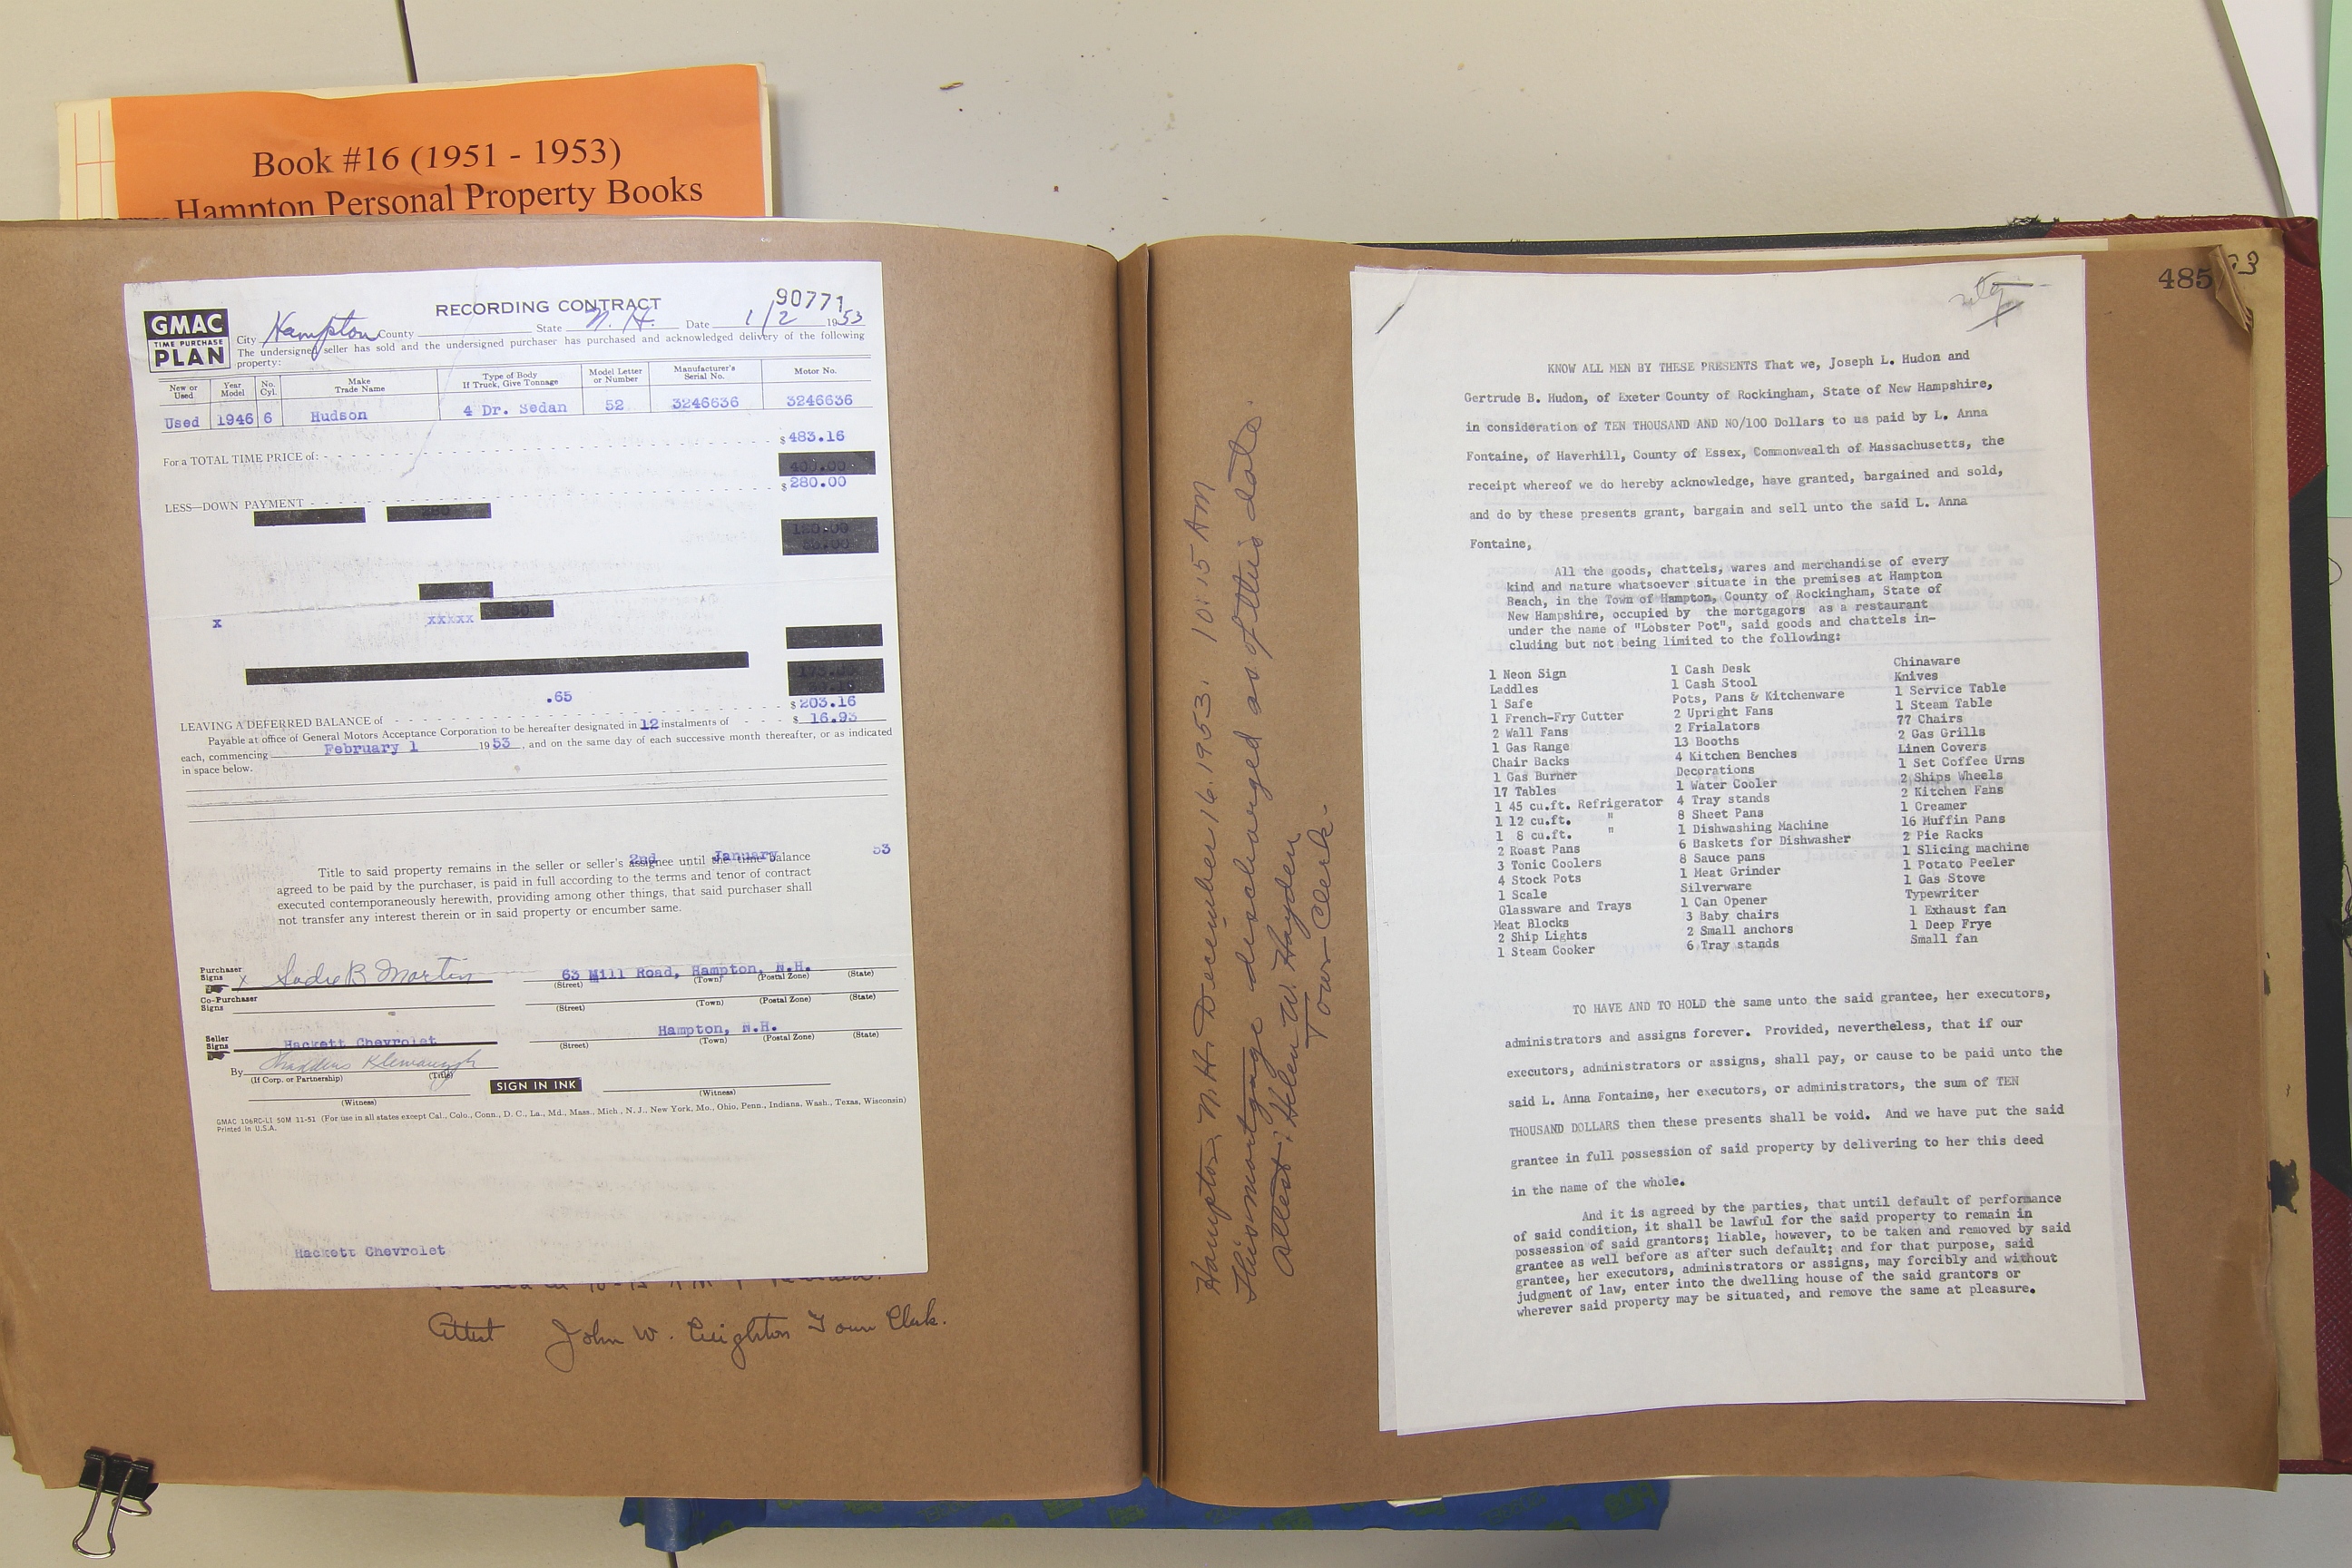 Book #16 (1951 - 1953)
Hampton Personal Property Books
GMAC
TIME PURCHASE
PLAN
RECORDING CONTRACT
90771
City Hampton County State N. H. Date 1/2 1953
The undersigned seller has sold and the undersigned purchaser has purchased and acknowledged delivery of the following
property:
New or Used Year Model No. Cyl. Make Trade Name Type of Body If Truck, Give Tonnage Model Letter or Number Manufacturer's Serial No. Motor No.
Used 1946 6 Hudson 4 Dr. Sedan 52 3246636 3246636
For a TOTAL TIME PRICE of: $ 483.16
LESS—DOWN PAYMENT $ 280.00
x xxxxx
.65
LEAVING A DEFERRED BALANCE of $ 203.16
Payable at office of General Motors Acceptance Corporation to be hereafter designated in 12 instalments of $ 16.93
each, commencing February 1 1953, and on the same day of each successive month thereafter, or as indicated
in space below.
2nd January 53
Title to said property remains in the seller or seller's assignee until the time balance
agreed to be paid by the purchaser, is paid in full according to the terms and tenor of contract
executed contemporaneously herewith, providing among other things, that said purchaser shall
not transfer any interest therein or in said property or encumber same.
Purchaser Signs x Sadie B Martin 63 Mill Road, Hampton, N.H.
(Street) (Town) (Postal Zone) (State)
Co-Purchaser Signs
(Street) (Town) (Postal Zone) (State)
Seller Signs Hackett Chevrolet Hampton, N.H.
(Street) (Town) (Postal Zone) (State)
By
(If Corp. or Partnership) (Title)
SIGN IN INK
(Witness) (Witness)
GMAC 106RC-L1 50M 11-51 (For use in all states except Cal., Colo., Conn., D. C., La., Md., Mass., Mich., N. J., New York, Mo., Ohio, Penn., Indiana, Wash., Texas, Wisconsin)
Printed in U.S.A.
Hackett Chevrolet
Attest John W. Creighton Town Clerk.
Hampton, N.H. December 16, 1953. 10:15 AM
This mortgage discharged as of this date.
Attest: Helen W. Hayden
Town Clerk.
485
KNOW ALL MEN BY THESE PRESENTS That we, Joseph L. Hudon and
Gertrude B. Hudon, of Exeter County of Rockingham, State of New Hampshire,
in consideration of TEN THOUSAND AND NO/100 Dollars to us paid by L. Anna
Fontaine, of Haverhill, County of Essex, Commonwealth of Massachusetts, the
receipt whereof we do hereby acknowledge, have granted, bargained and sold,
and do by these presents grant, bargain and sell unto the said L. Anna
Fontaine,
All the goods, chattels, wares and merchandise of every
kind and nature whatsoever situate in the premises at Hampton
Beach, in the Town of Hampton, County of Rockingham, State of
New Hampshire, occupied by the mortgagors as a restaurant
under the name of "Lobster Pot", said goods and chattels in-
cluding but not being limited to the following:
1 Neon Sign
Laddles
1 Safe
1 French-Fry Cutter
2 Wall Fans
1 Gas Range
Chair Backs
1 Gas Burner
17 Tables
1 45 cu.ft. Refrigerator
1 12 cu.ft. "
1 8 cu.ft. "
2 Roast Pans
3 Tonic Coolers
4 Stock Pots
1 Scale
Glassware and Trays
Meat Blocks
2 Ship Lights
1 Steam Cooker
1 Cash Desk
1 Cash Stool
Pots, Pans & Kitchenware
2 Upright Fans
2 Frialators
13 Booths
4 Kitchen Benches
Decorations
1 Water Cooler
4 Tray stands
8 Sheet Pans
1 Dishwashing Machine
6 Baskets for Dishwasher
8 Sauce pans
1 Meat Grinder
Silverware
1 Can Opener
3 Baby chairs
2 Small anchors
6 Tray stands
Chinaware
Knives
1 Service Table
1 Steam Table
77 Chairs
2 Gas Grills
Linen Covers
1 Set Coffee Urns
2 Ships Wheels
2 Kitchen Fans
1 Creamer
16 Muffin Pans
2 Pie Racks
1 Slicing machine
1 Potato Peeler
1 Gas Stove
Typewriter
1 Exhaust fan
1 Deep Frye
Small fan
TO HAVE AND TO HOLD the same unto the said grantee, her executors,
administrators and assigns forever. Provided, nevertheless, that if our
executors, administrators or assigns, shall pay, or cause to be paid unto the
said L. Anna Fontaine, her executors, or administrators, the sum of TEN
THOUSAND DOLLARS then these presents shall be void. And we have put the said
grantee in full possession of said property by delivering to her this deed
in the name of the whole.
And it is agreed by the parties, that until default of performance
of said condition, it shall be lawful for the said property to remain in
possession of said grantors; liable, however, to be taken and removed by said
grantee as well before as after such default; and for that purpose, said
grantee, her executors, administrators or assigns, may forcibly and without
judgment of law, enter into the dwelling house of the said grantors or
wherever said property may be situated, and remove the same at pleasure.